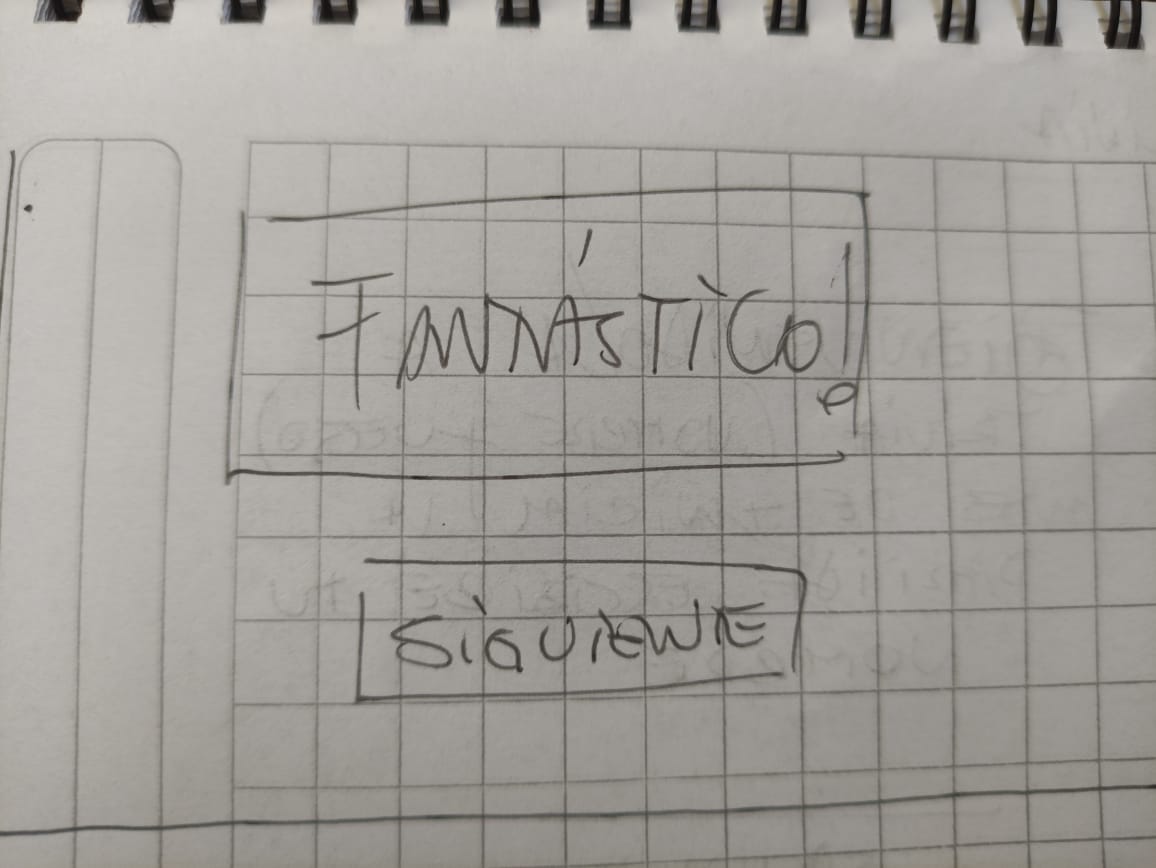 FANTÁSTICO!
SIGUIENTE